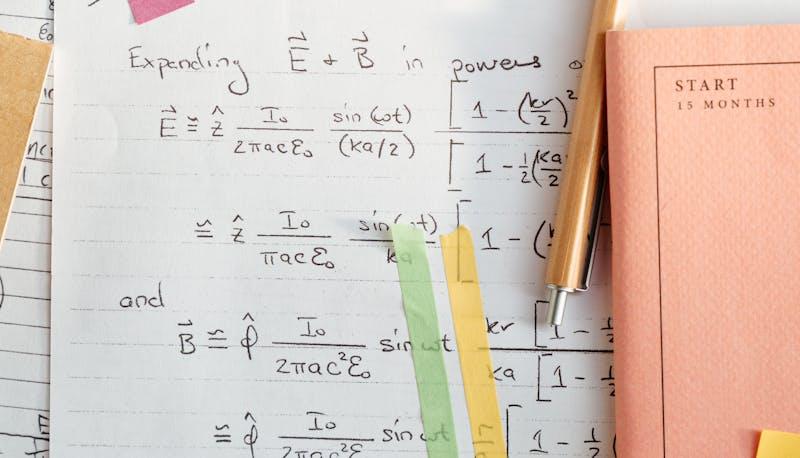 Expanding E⃗ + B⃗ in powers
E⃗ ≅ ẑ I₀/2πacε₀ sin(ωt)/(ka/2) [1 - (kr/2)²
[1 - 1/2(ka/2
≅ ẑ I₀/πacε₀ sin(ωt)/ka [1 - (
and
B⃗ ≅ φ̂ I₀/2πac²ε₀ sin ωt kr/ka [1 - 1/
[1 - 1/
≅ φ̂ I₀/2πac²ε₀ sin ωt [1 - 1/2
START
15 MONTHS